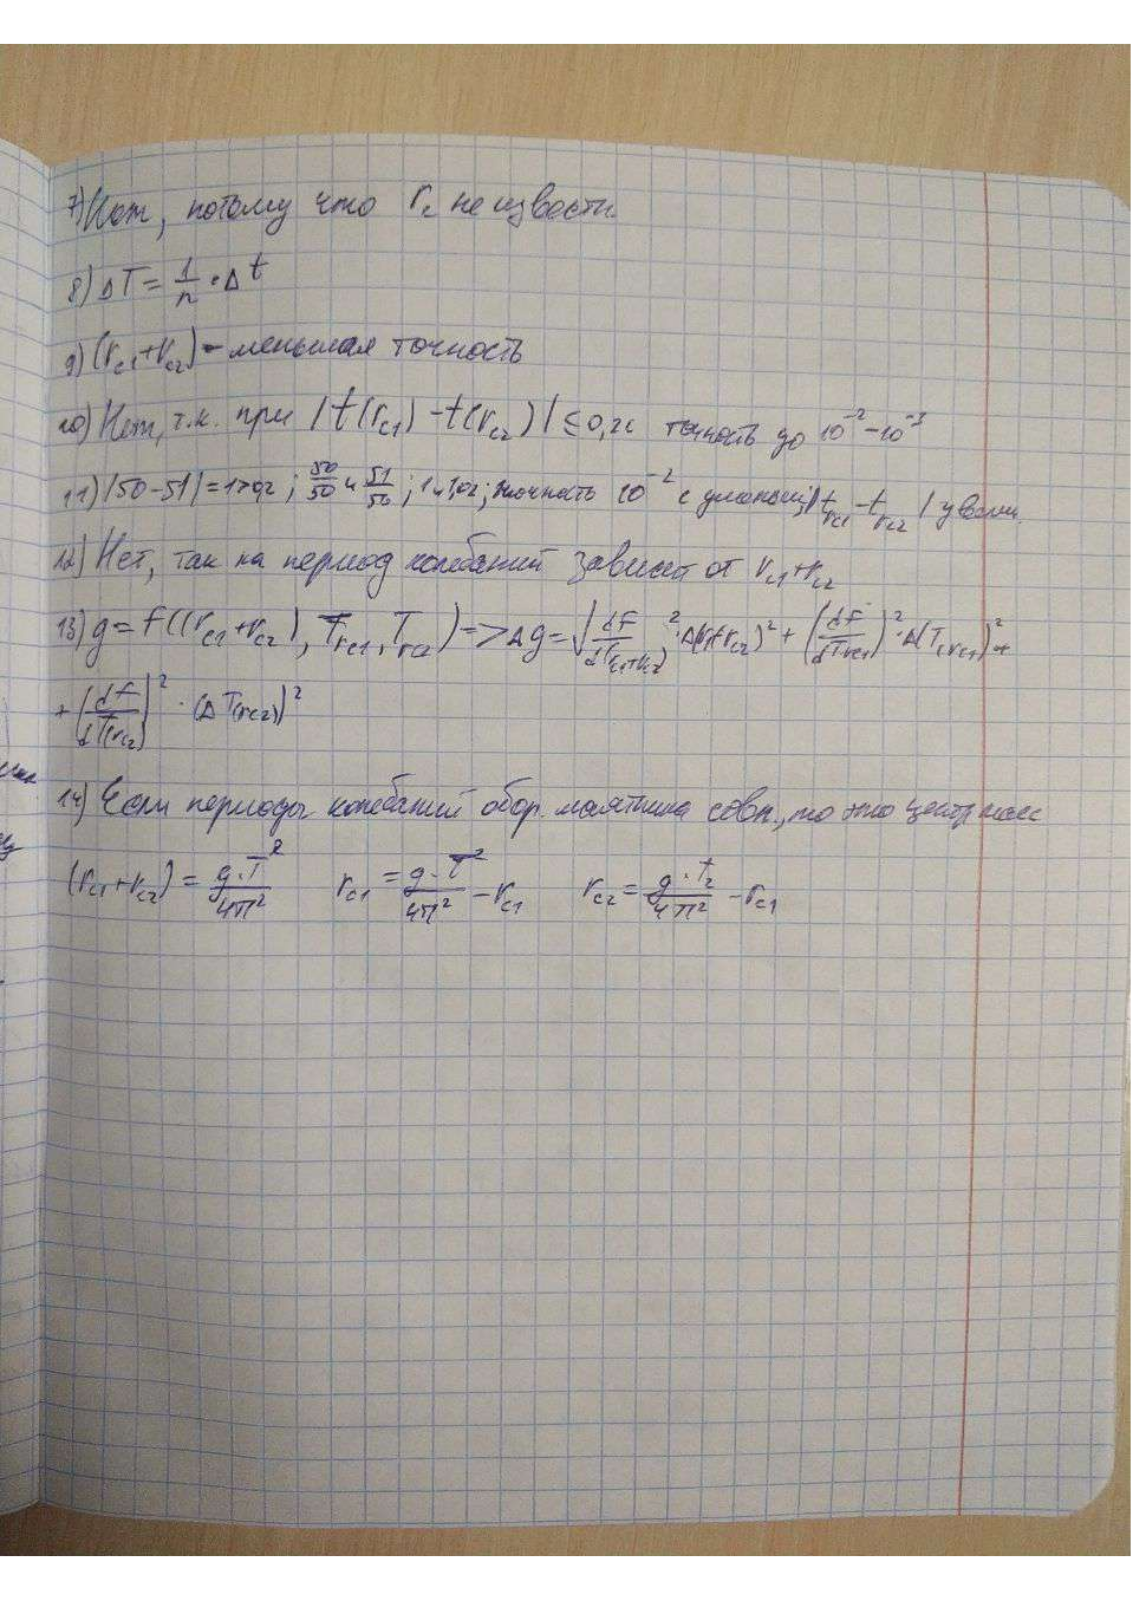 7) Нет, потому что r_c не известн.
8) ΔT = 1/n · Δt
9) (r_c1 + r_c2) - меньшая точность
10) Нет, т.к. при |t(r_c1) - t(r_c2)| ≤ 0,2с точность до 10^-2 - 10^-3
11) |50-51| = 1 > 0,2 ; 50/50 и 51/50 ; 1 и 1,02 ; точность 10^-2 с уменьш, |t_rc1 - t_rc2| увелич.
12) Нет, так ка период колебаний зависит от r_c1 + r_c2
13) g = f((r_c1 + r_c2), T_rc1, T_rc2) => Δg = √(df/dT_rc1+rc2)^2 · Δ(r_c1+r_c2)^2 + (df/dT_rc1)^2 · Δ(T(rc1))^2 +
+ (df/dT(rc2))^2 · (ΔT(rc2))^2
14) Если периоды колебаний обор. маятника совп., то это центр масс
(r_c1 + r_c2) = g·T^2/4π^2 r_c1 = g·T^2/4π^2 - r_c1 r_c2 = g·T_2/4π^2 - r_c1